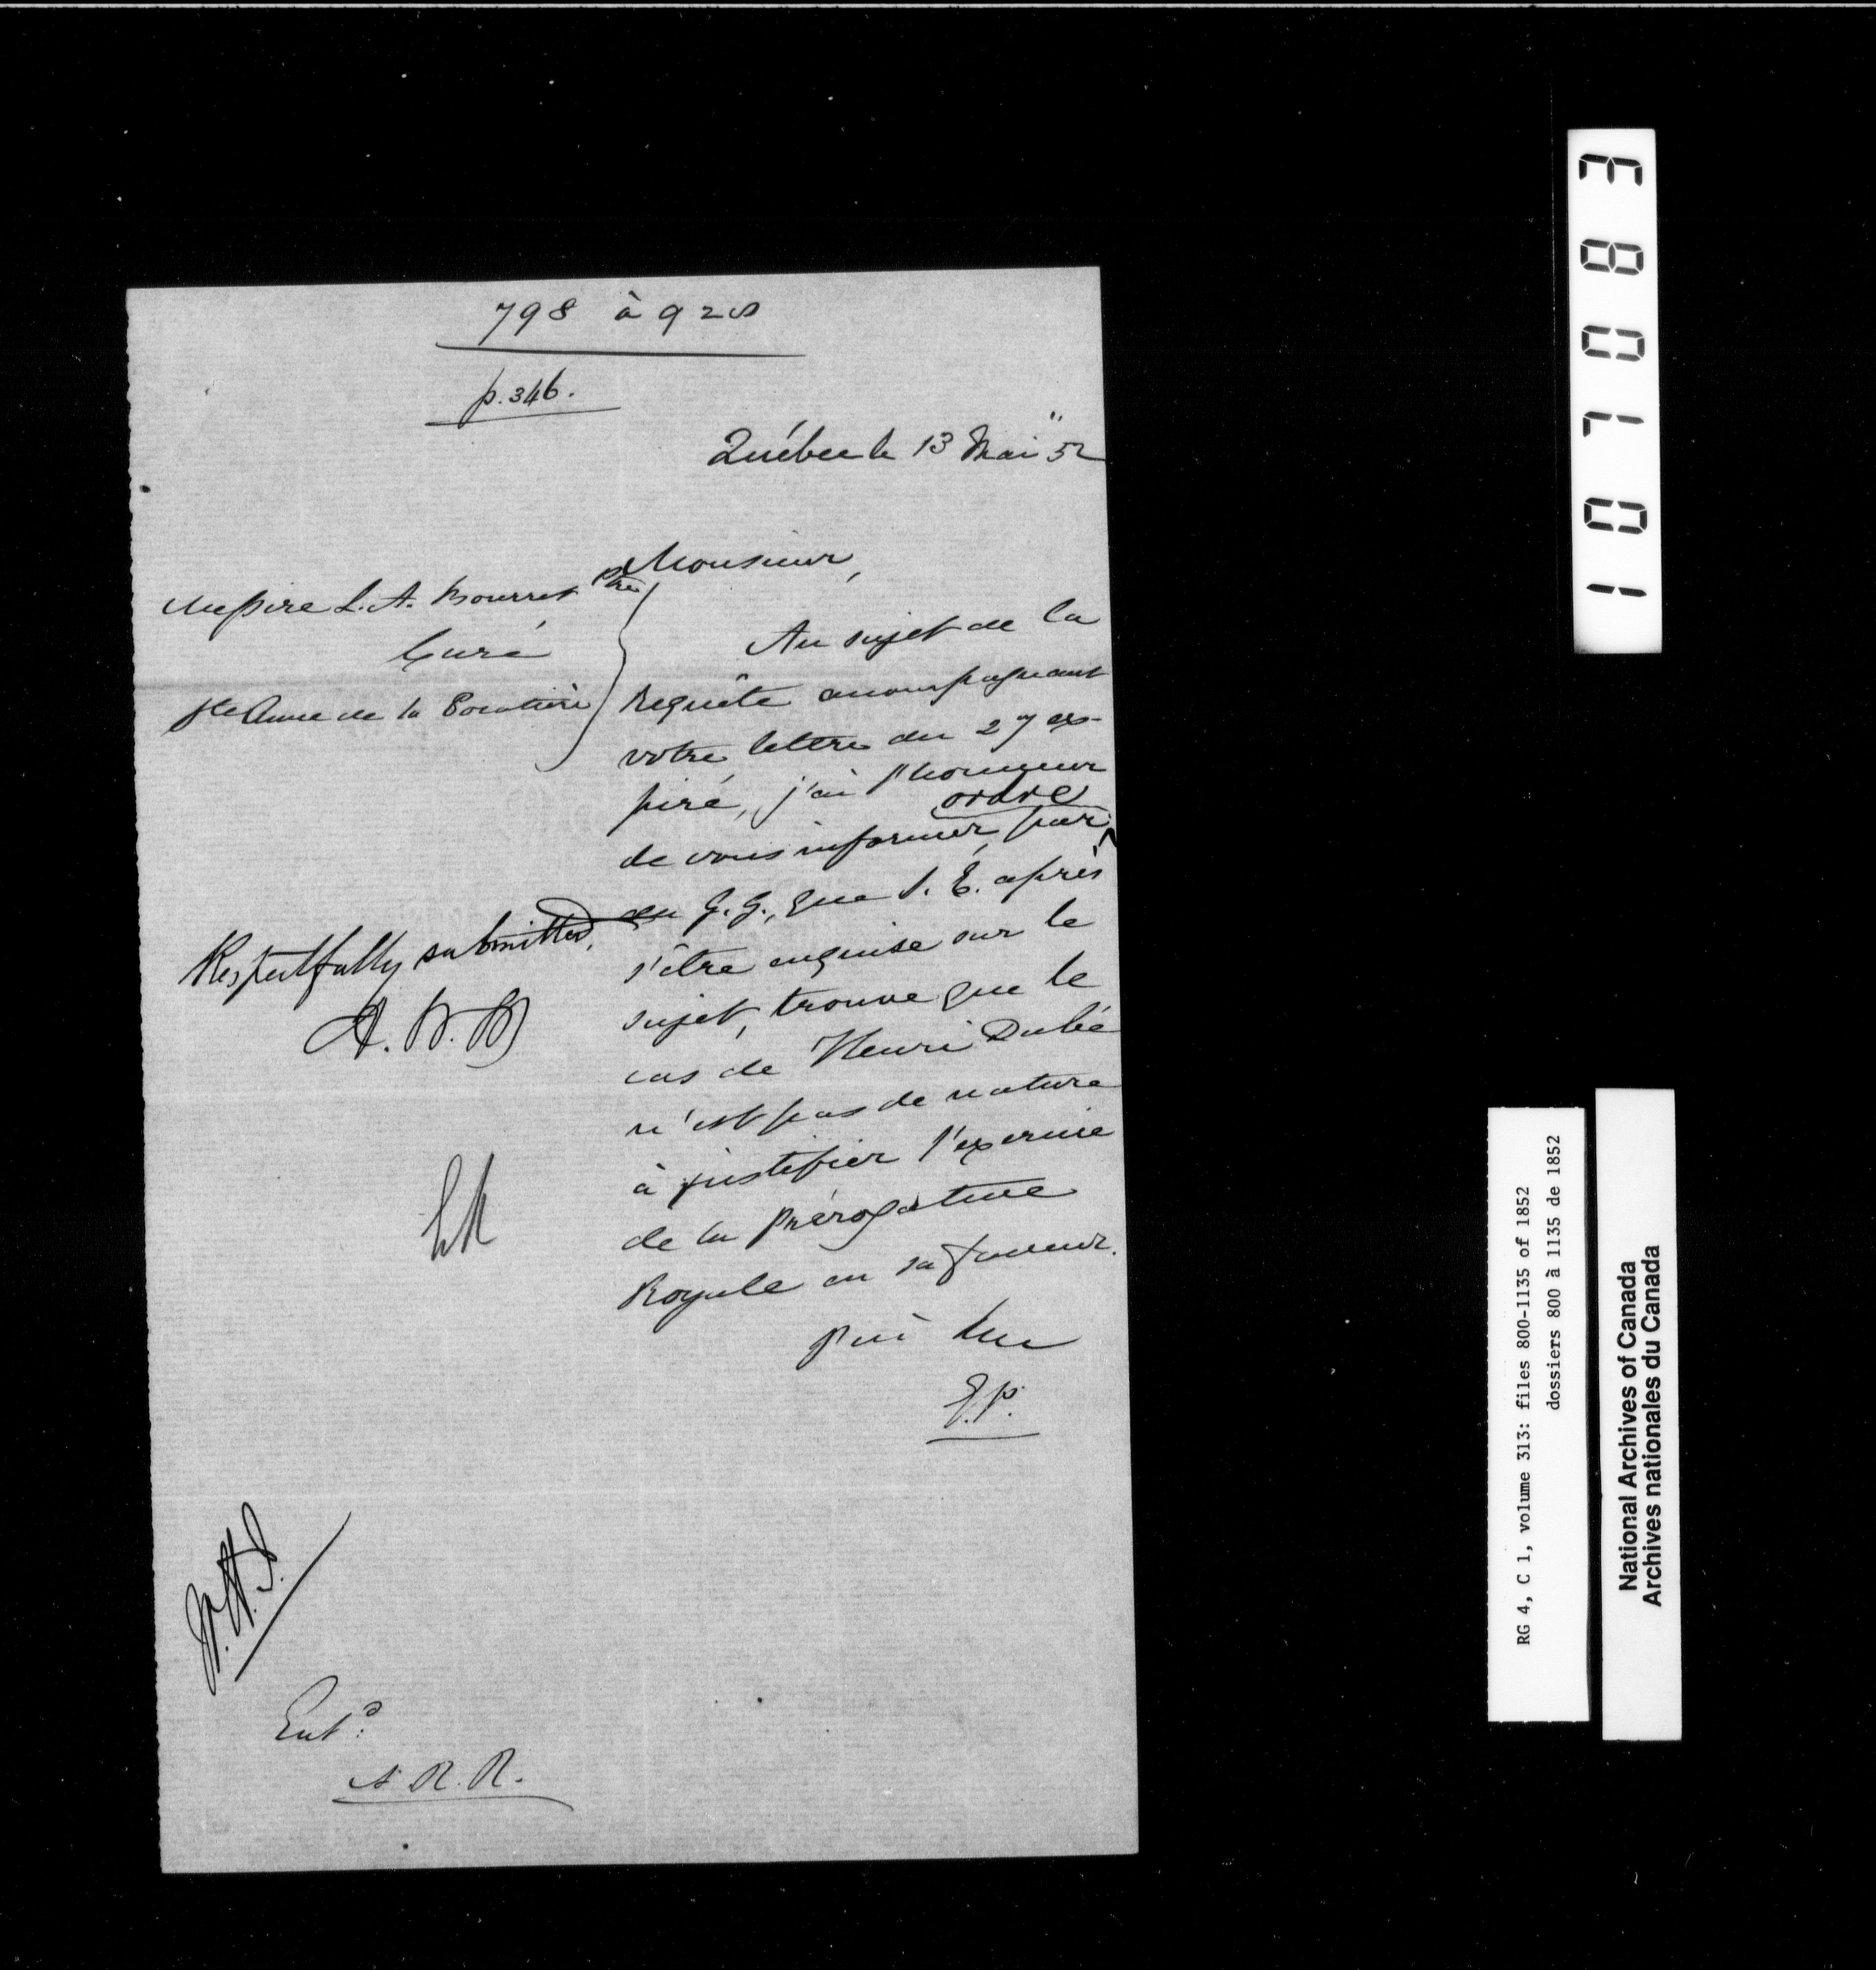 798 à 920
p. 346.
Québec le 13 Mai "52
Monsieur,
Messire L. A. Bourret Ptre
Curé
Ste Anne de la Pocatière
Au sujet de la
Requête accompagnant
votre lettre du 27 ex-
piré, j'ai l'honneur
de vous informer, par ordre
du G. G., que S. E. après
s'être enquise sur le
sujet, trouve que le
cas de Henri Dubé
n'est pas de nature
à justifier l'exercice
de la Prérogative
Royale en sa faveur.
J'ai &c
E.P.
Respectfully submitted,
A. N. M
Entd.
A. R. R.
1 0 1 7 0 8 3
RG 4, C 1, volume 313: files 800-1135 of 1852
dossiers 800 à 1135 de 1852
National Archives of Canada
Archives nationales du Canada